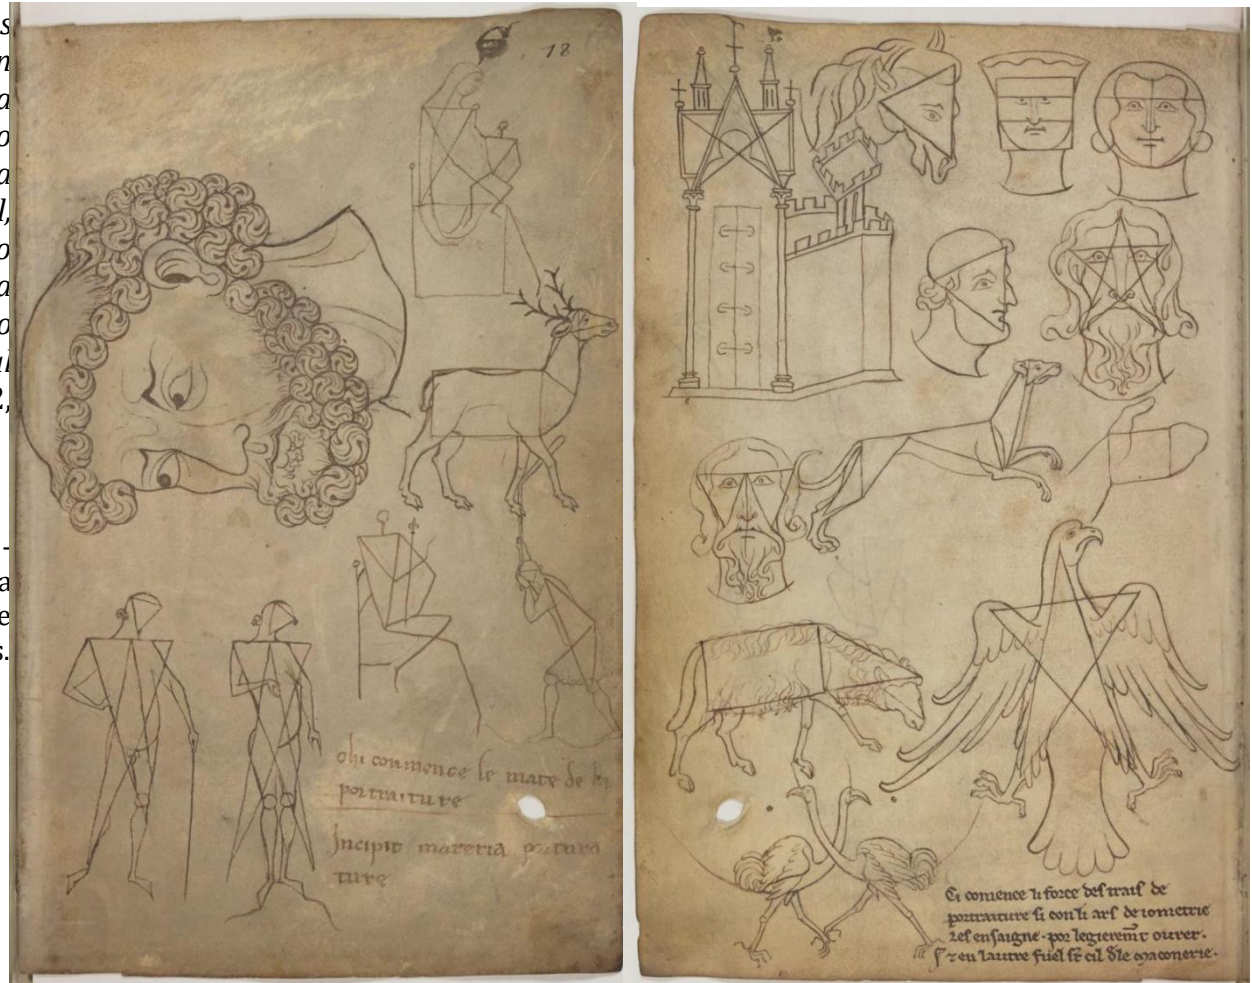 s
n
a
o
a
l,
o
a
o
al
2,
-
a
e
s.
18
chi commence le mate de la
portraiture
Incipit materia portura
ture
Ci comence li force des trais de
portraiture si con li ars de iometrie
les ensaigne · por legieremt ourer ·
z en lautre fuel st cil dle maconerie ·